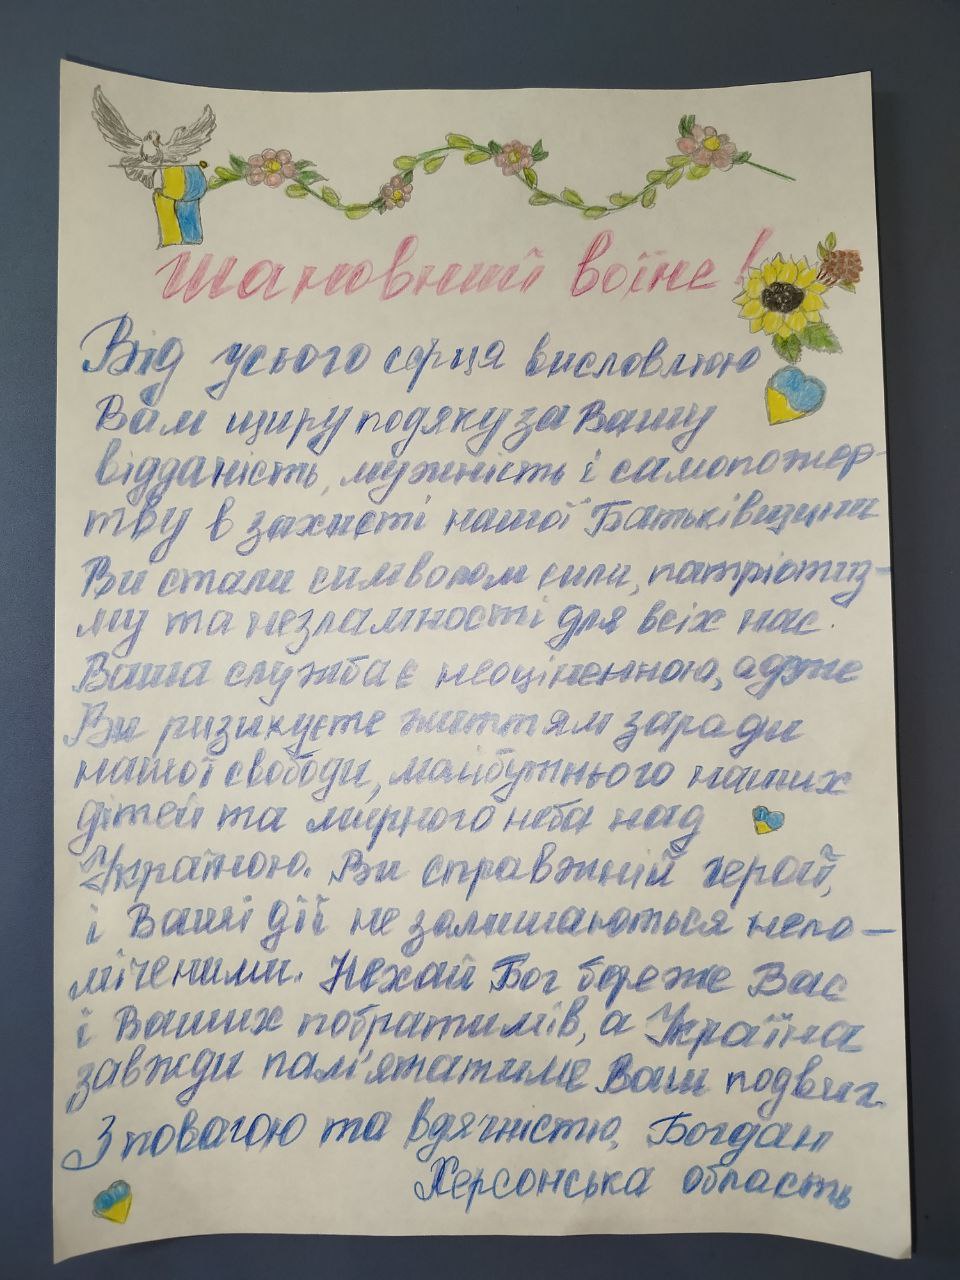 Шановний воїне!
Від усього серця висловлюю
Вам щиру подяку за Вашу
відданість, мужність і самопожер-
тву в захисті нашої Батьківщини
Ви стали символом сили, патріотиз-
му та незламності для всіх нас.
Ваша служба є неоціненною, адже
Ви ризикуєте життям заради
нашої свободи, майбутнього наших
дітей та мирного неба над
Україною. Ви справжній герой,
і Ваші дії не залишаються непо-
міченими. Нехай Бог береже Вас
і Ваших побратимів, а Україна
завжди пам'ятатиме Ваш подвиг.
З повагою та вдячністю, Богдан
Херсонська область